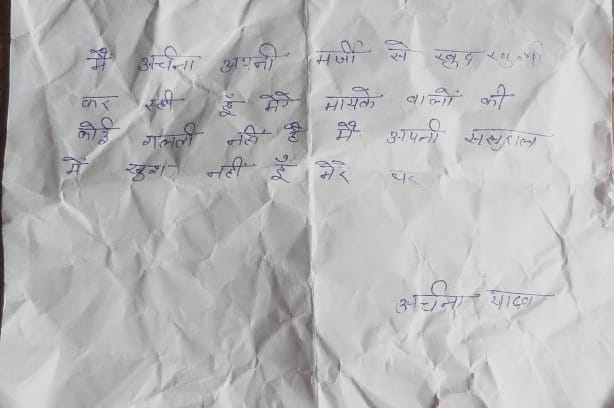 मैं अर्चना अपनी मर्जी से खुद
कर रही हूँ मेरे मायके वालों की
कोई गलती नहीं है मैं अपनी ससुराल
में खुश नहीं हूँ मेरे घर
अर्चना यादव